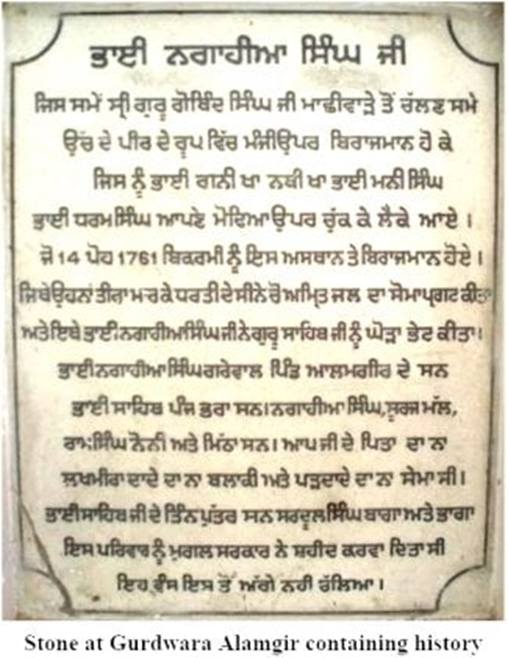 ਭਾਈ ਨਗਾਹੀਆ ਸਿੰਘ ਜੀ
ਜਿਸ ਸਮੇਂ ਸ੍ਰੀ ਗੁਰੂ ਗੋਬਿੰਦ ਸਿੰਘ ਜੀ ਮਾਛੀਵਾੜੇ ਤੋਂ ਚੱਲਣ ਸਮੇ
ਉਚ ਦੇ ਪੀਰ ਦੇ ਰੂਪ ਵਿੱਚ ਮੰਜੀਉਪਰ ਬਿਰਾਜਮਾਨ ਹੋ ਕੇ
ਜਿਸ ਨੂੰ ਭਾਈ ਗਨੀ ਖਾ ਨਬੀ ਖਾ ਭਾਈ ਮਨੀ ਸਿੰਘ
ਭਾਈ ਧਰਮਸਿੰਘ ਆਪਣੇ ਮੋਢਿਆਉਪਰ ਚੁੱਕ ਕੇ ਲੈਕੇ ਆਏ ।
ਜੋ 14 ਪੋਹ 1761 ਬਿਕਰਮੀ ਨੂੰ ਇਸ ਅਸਥਾਨ ਤੇ ਬਿਰਾਜਮਾਨ ਹੋਏ ।
ਜਿਥੇਉਹਨਾਂ ਤੀਰਮਾਰਕੇ ਧਰਤੀ ਦੇਸੀਨੇ ਚੋਅਮ੍ਰਿਤ ਜਲ ਦਾ ਸੋਮਾਪ੍ਰਗਟ ਕੀਤਾ
ਅਤੇਇਥੇ ਭਾਈਨਗਾਹੀਆਸਿੰਘਜੀਨੇ ਗੁਰੂ ਸਾਹਿਬ ਜੀ ਨੂੰ ਘੋੜਾ ਭੇਟ ਕੀਤਾ।
ਭਾਈਨਗਾਹੀਆ ਸਿੰਘਗਰੇਵਾਲ ਪਿੰਡ ਆਲਮਗੀਰ ਦੇ ਸਨ
ਭਾਈ ਸਾਹਿਬ ਪੰਜ ਭਰਾ ਸਨ।ਨਗਾਹੀਆ ਸਿੰਘ,ਸੂਰਜ ਮੱਲ,
ਰਾਮਸਿੰਘ ਨੋਨੀ ਅਤੇ ਮਿੱਠਾ ਸਨ। ਆਪ ਜੀ ਦੇ ਪਿਤਾ ਦਾ ਨਾ
ਲਖਮੀਰਾ ਦਾਦੇ ਦਾ ਨਾ ਬਲਾਕੀ ਅਤੇ ਪੜਦਾਦੇ ਦਾ ਨਾ ਸੇਮਾ ਸੀ।
ਭਾਈਸਾਹਿਬ ਜੀ ਦੇ ਤਿੰਨ ਪੁੱਤਰ ਸਨ ਸਰਦੂਲਸਿੰਘ ਬਾਗਾ ਅਤੇ ਭਾਗਾ
ਇਸ ਪਰਿਵਾਰ ਨੂੰ ਮੁਗਲ ਸਰਕਾਰ ਨੇ ਸ਼ਹੀਦ ਕਰਵਾ ਦਿਤਾ ਸੀ
ਇਹ ਵੰਸ ਇਸ ਤੋਂ ਅੱਗੇ ਨਹੀ ਚੱਲਿਆ।
Stone at Gurdwara Alamgir containing history